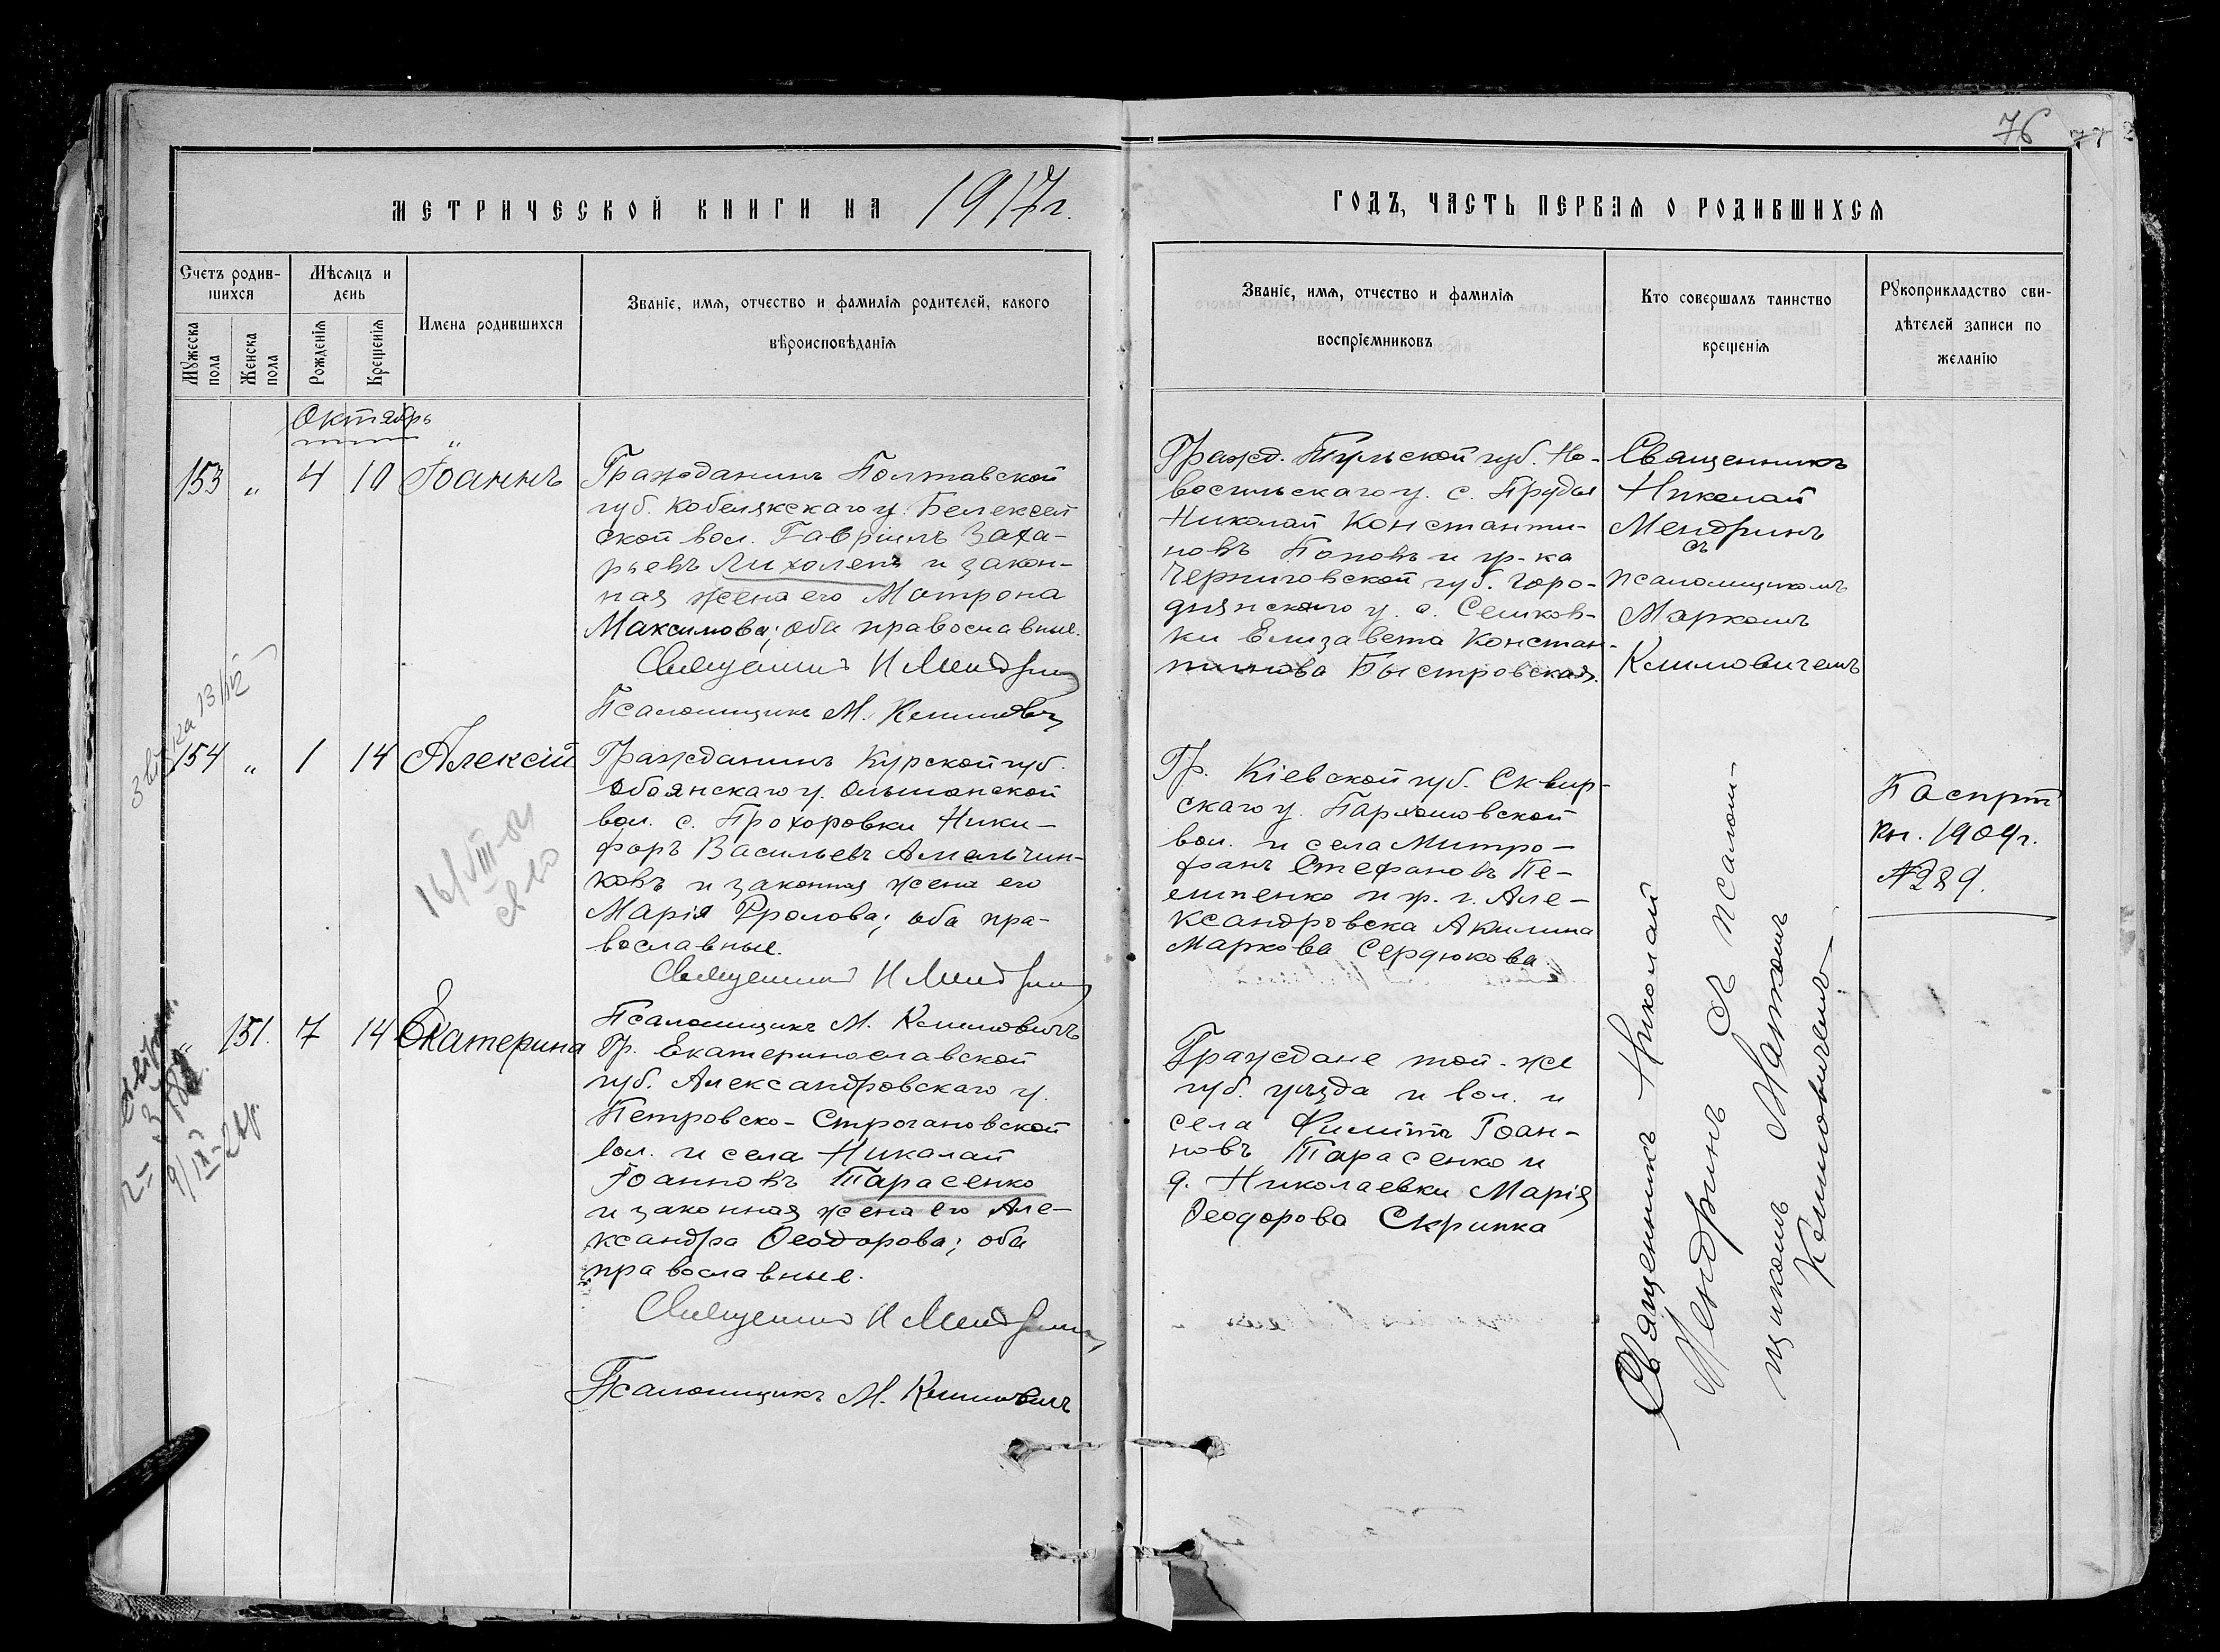 76
77
МЕТРИЧЕСКОЙ КНИГИ НА 1917г.
ГОДЪ, ЧАСТЬ ПЕРВАѦ О РОДИВШИХСѦ
Счетъ родив-
шихся
Мужеска пола
Женска пола
Мѣсѧцъ и день
Рожденіѧ
Крещеніѧ
Имена родившихся
Званіе, имѧ, отчество и фамиліѧ родителей, какого
вѣроисповѣданіѧ
Званіе, имѧ, отчество и фамиліѧ
воспріемниковъ
Кто совершалъ таинство
крещеніѧ
Рукоприкладство сви-
дѣтелей записи по
желанію
Октябрь
153 „ 4 10 Іоаннъ
Гражданинъ Полтавской
губ. Кобелякскаго у. Белексей
ской вол. Гавріилъ Заха-
рьевъ Лихолетъ и закон-
ная жена его Матрона
Максимова; оба православные.
Священникъ Н Мендринъ
Псаломщикъ М. Климовичъ
Гражд. Тульской губ. Но-
восильскаго у. с. Пруды
Николай Константи-
новъ Поповъ и гр-ка
Черниговской губ. Горо-
днянскаго у. с. Сешков-
ки Елизавета Констан-
тинова Быстровская.
Священникъ
Николай
Мендринъ
съ
псаломщикомъ
Маркомъ
Климовичемъ
154 „ 1 14 Алексій
16/VIII-
Гражданинъ Курской губ.
Обоянскаго у. Ольшанской
вол. с. Прохоровки Ники-
форъ Васильевъ Амельчин-
ковъ и законная жена его
Марія Фролова; оба пра-
вославные.
Священникъ Н Мендринъ
Псаломщикъ М. Климовичъ
Гр. Кіевской губ. Сквир-
скаго у. Пархомовской
вол. и села Митро-
фанъ Стефановъ Пе-
липенко и гр. г. Але-
ксандровска Акилина
Маркова Сердюкова
Паспрт
кн. 1909г.
№ 289.
„ 151. 7 14 Екатерина
Гр. Екатеринославской
губ. Александровскаго у.
Петровско-Строгановской
вол. и села Николай
Іоанновъ Тарасенко
и законная жена его Але-
ксандра Ѳеодорова; оба
православные.
Священникъ Н Мендринъ
Псаломщикъ М. Климовичъ
Граждане той-же
губ. уѣзда и вол. и
села Филиппъ Іоан-
новъ Тарасенко и
д. Николаевки Марія
Ѳеодорова Скрипка
Священникъ Николай
Мендринъ съ псалом-
щикомъ Маркомъ
Климовичемъ